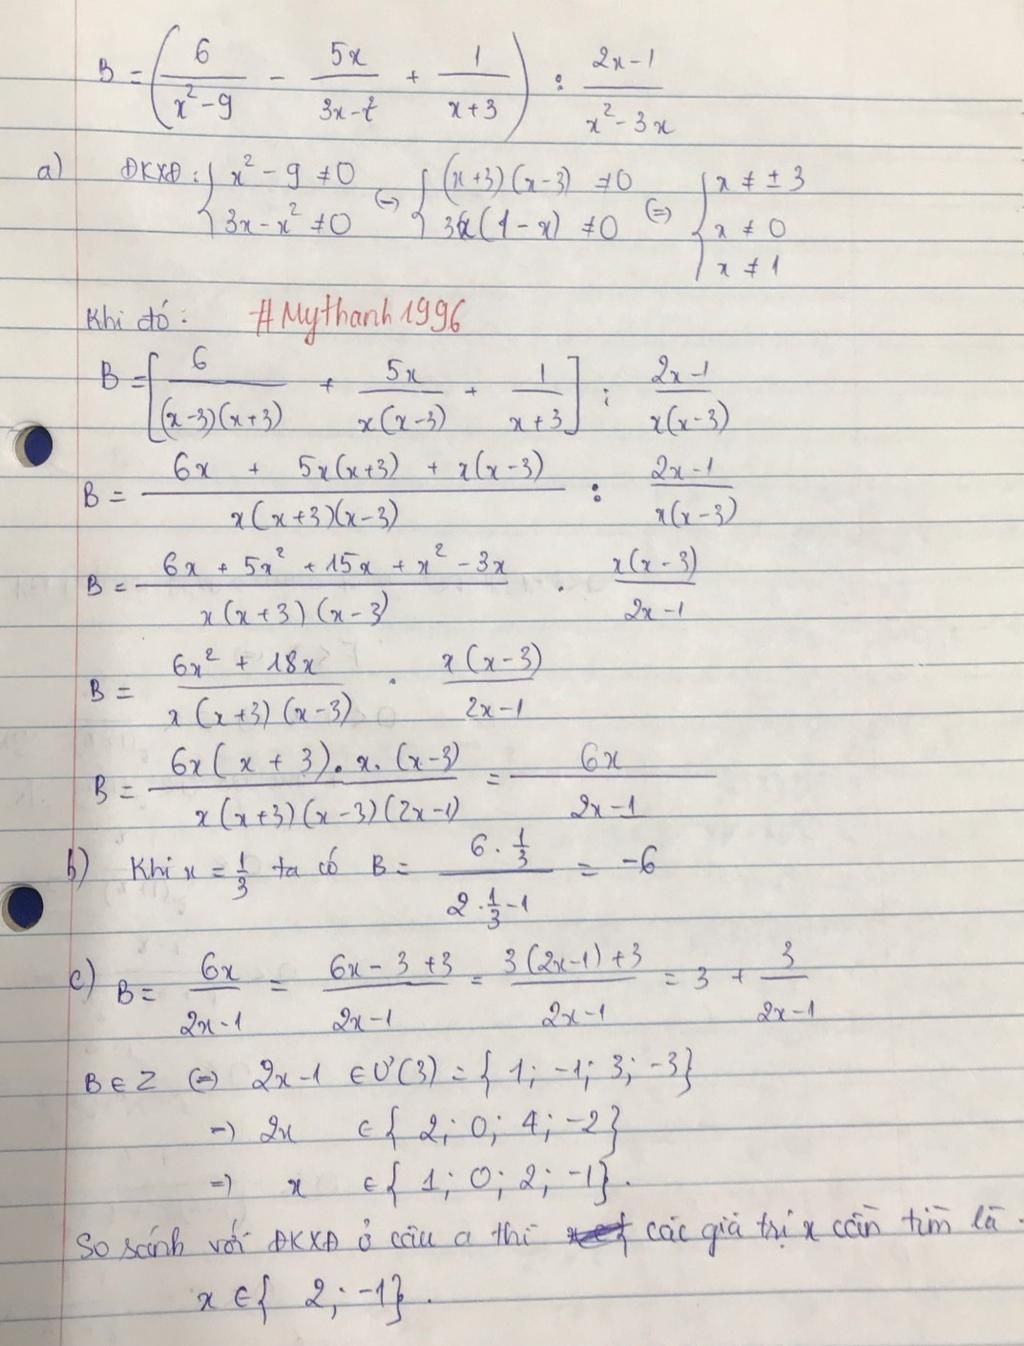 B = ( 6/(x² - 9) - 5x/(3x - x²) + 1/(x + 3) ) : (2x - 1)/(x² - 3x)
a) ĐKXĐ: { x² - 9 ≠ 0 ; 3x - x² ≠ 0 (=) { (x+3)(x-3) ≠ 0 ; 3x(1 - x) ≠ 0 (=) { x ≠ ± 3 ; x ≠ 0 ; x ≠ 1
Khi đó: #Mythanh1996
B = [ 6/((x-3)(x+3)) + 5x/(x(x-3)) + 1/(x+3) ] : (2x-1)/(x(x-3))
B = (6x + 5x(x+3) + x(x-3))/(x(x+3)(x-3)) : (2x-1)/(x(x-3))
B = (6x + 5x² + 15x + x² - 3x)/(x(x+3)(x-3)) . (x(x-3))/(2x-1)
B = (6x² + 18x)/(x(x+3)(x-3)) . (x(x-3))/(2x-1)
B = (6x(x+3).x.(x-3))/(x(x+3)(x-3)(2x-1)) = 6x/(2x-1)
b) Khi x = 1/3 ta có B = (6 . 1/3)/(2 . 1/3 - 1) = -6
c) B = 6x/(2x-1) = (6x - 3 + 3)/(2x-1) = (3(2x-1) + 3)/(2x-1) = 3 + 3/(2x-1)
B ∈ Z (=) 2x-1 ∈ Ư(3) = { 1; -1; 3; -3}
=) 2x ∈ { 2; 0; 4; -2}
=) x ∈ { 1; 0; 2; -1}.
So sánh với ĐKXĐ ở câu a thì các giá trị x cần tìm là
x ∈ { 2; -1}.